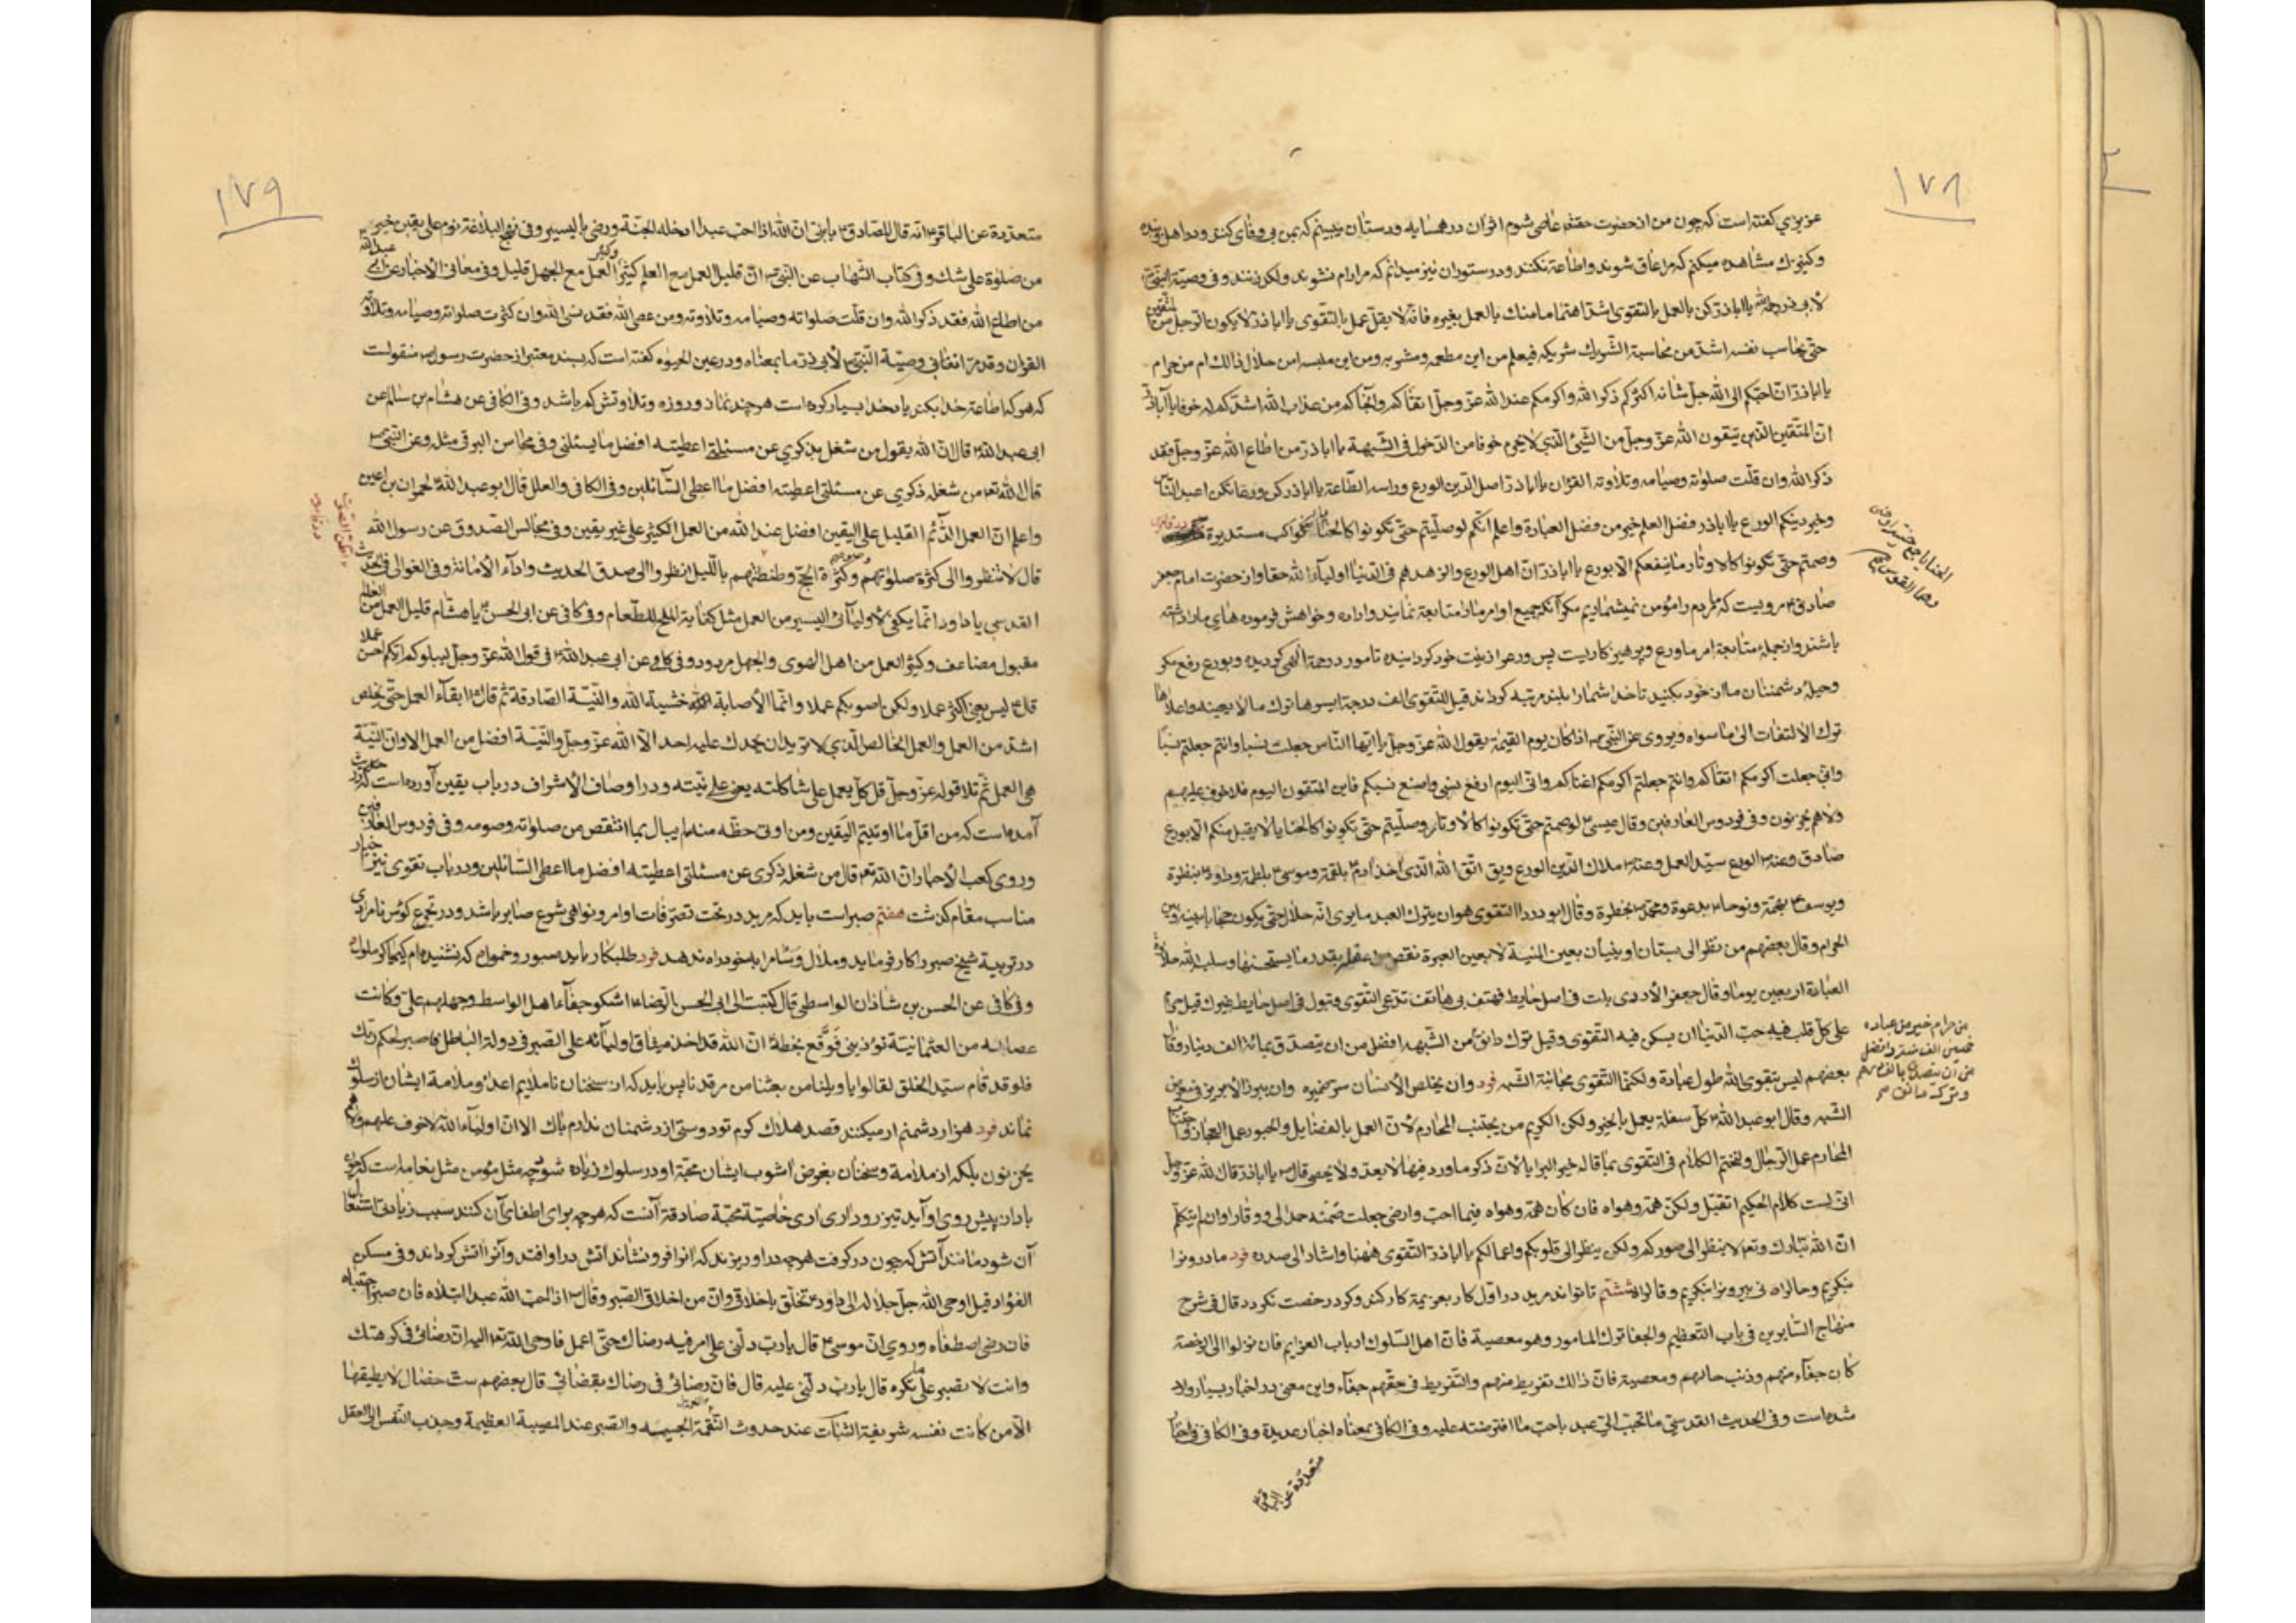 ١٧٨
عزيزي كفته است كه چون من از حضرت حقتعه عاصى شوم اثر آن در همسايه و دوستان ببينم كه بمن بى وفائ كنند
وكنيزك مشاهده ميكنم كه مرا عاق شوند واطاعة نكنند ودر ستوران نيز ميدانم كه مرا رام نشوند ولكد زنند وفى وصية النبى
لأبى ذر رحمه الله يا اباذر كن بالعمل بالتقوى اشد اهتماما منك بالعمل بغيره فانه لا يقل عمل بالتقوى يا اباذر لا يكون الرجل من المتقين
حتى يحاسب نفسه اشد من محاسبة الشريك شريكه فيعلم من اين مطعمه ومشربه ومن اين ملبسه امن حلال ذالك ام من حرام
يا اباذر ان احبكم الى الله جل شانه اكثركم ذكرا لله واكرمكم عند الله عز وجل اتقاكم وانجاكم من عذاب الله اشدكم له خوفا يا اباذر
ان المتقين الذين يتقون الله عز وجل من الشئ الذى لا يتقى خوفا من الدخول فى الشبهة يا اباذر من اطاع الله عز وجل فقد
ذكر الله وان قلت صلوته وصيامه وتلاوته القران يا اباذر اصل الدين الورع وراسه الطاعة يا اباذر كن ورعا تكن اعبد الناس
وخير دينكم الورع يا اباذر فضل العلم خير من فضل العبادة واعلم انكم لو صليتم حتى تكونوا كالحنايا
وصمتم حتى تكونوا كالاوتار ما ينفعكم الا بورع يا اباذر ان اهل الورع والزهد هم فى الدنيا اولياء الله حقا واز حضرت امام جعفر
صادق ع مرويست كه ما مردم را مؤمن نميشماريم مكر آنكه جميع اوامر ما را متابعة نمايند واراده وخواهش فرموده هاى ما را داشته
باشند واز جمله متابعة امر ما ورع وپرهيز كاريست پس ورع را زينت خود كردانيده تا مورد رحمة الهى كرديده وبورع رفع مكر
وحيله دشمنان ما از خود بكنيد تا خدا شما را بلند مرتبه كرداند قيل للتقوى الف درجة ايسرها ترك ما لا يعينه واعلاها
ترك الالتفات الى ما سواه ويروى عن النبى ص اذا كان يوم القيمة يقول الله عز وجل يا ايها الناس جعلت نسبا وانتم جعلتم نسبا
وانى جعلت اكرمكم اتقاكم وانتم جعلتم اكرمكم اغناكم وانى اليوم ارفع نسبى واضع نسبكم فاين المتقون اليوم فلا خوف عليهم
ولاهم يحزنون وفى فردوس العارفين وقال عيسى ع لو صمتم حتى تكونوا كالأوتار وصليتم حتى تكونوا كالحنايا لا يقبل منكم الا بورع
صادق وعنه ع الورع سيد العمل وعنه ع ملاك الدين الورع ويق اتق الله الذى اخذ ادم بلقمة وموسى ع بلطمة وداود ع بنظرة
ويوسف ع بهمة ونوحا ع بدعوة ومحمد ص بخطرة وقال ابو دردا التقوى هو ان يترك العبد ما يرى انه حلال حتى يكون حجابا بينه وبين
الحرام وقال بعضهم من نظر الى بستان او بنيان بعين المنية لا بعين العبرة نقص من عقله بقدر ما يستحسنها وسلب الله حلاوة
العبادة اربعين يوما وقال جعفر الأددى بات فى اصل حايط فهتف بى هاتف تدعى التقوى وتبول فى اصل حايط غيرك قيل حرام
على كل قلب فيه حب الدنيا ان يسكن فيه التقوى وقيل ترك دانق من الشبهه افضل من ان يتصدق بمائة الف دينار وقال
بعضهم ليس بتقوى الله طول عبادة ولكنما التقوى مجانبة الشبه فرد وان يخلص الأنسان
الشبه وقال ابو عبد الله ع كل سفلة يعمل بالخير ولكن الكريم من يجتنب المحارم لأن العمل بالفضايل
المحارم عمل الرجال ولنختم الكلام فى التقوى بما قاله خير البرايا لأن ذكر ما ورد فيها لا يعد ولا يحصى قال ص يا اباذر قال الله عز وجل
انى لست كلام الحكيم اتقبل ولكن همه وهواه فان كان همه وهواه فيما احب وارضى جعلت صمته حمدا لى ووقارا وان لم يتكلم
ان الله تبارك وتعه لا ينظر الى صوركم ولكن ينظر الى قلوبكم واعمالكم يا اباذر التقوى ههنا واشار الى صدره فرد ما درون را
بنكريم وحال را نى بيرون را بنكريم وقال را ششم تا تواند مريد در اول كار بعزيمة كار كند وكرد رخصت نكردد قال فى شرح
منهاج السايرين فى باب التعظيم والجفا ترك المامور وهو معصية فان اهل السلوك ارباب العزايم فان نزلوا الى الرخصة
كان جفاء منهم وذنب حالهم ومعصية فان ذالك تفريط منهم والتفريط فى حقهم جفاء واين معنى در اخبار بسيار وارد
شده است وفى الحديث القدسى ما تحبب الى عبد باحب مما افترضته عليه وفى الكافى بمعناه اخبار عديدة وفى الكافى فى اخبار
متعددة عن الباقر ع
الحنايا جمع
وهما القوس
من حرام خير من عبادة
خمسين الف سنة وافضل
من ان يتصدق بالف درهم
١٧٩
متعددة عن الباقر ع انه قال للصادق ع يا بنى ان الله اذا احب عبدا ادخله الجنة ورضى باليسير وفى نهج البلاغة نوم على يقين خير
من صلوة على شك وفى كتاب الشهاب عن النبى ص ان قليل العمل مع العلم كثير وكثير العمل مع الجهل قليل وفى معانى الأخبار عن ابى عبد الله
من اطاع الله فقد ذكر الله وان قلت صلواته وصيامه وتلاوته ومن عصى الله فقد نسى الله وان كثرت صلواته وصيامه وتلاوته
القران وقد مر انفا فى وصية النبى ص لأبى ذر ما بمعناه ودر عين الحيوه كفته است كه بسند معتبر از حضرت رسول ص منقولست
كه هر كه اطاعة خدا بكند ياد خدا بسيار كرده است هر چند نماز وروزه وتلاوتش كم باشد وفى الكافى عن هشام بن سالم عن
ابى عبد الله ع قال ان الله يقول من شغل بذكرى عن مسئلتى اعطيته افضل ما يسئلنى وفى محاسن البرقى مثله وعن النبى ص
قال الله تعه من شغله ذكرى عن مسئلتى اعطيته افضل ما اعطى السائلين وفى الكافى والعلل قال ابو عبد الله ع لحمران بن اعين
واعلم ان العمل الدائم القليل على اليقين افضل عند الله من العمل الكثير على غير يقين وفى مجالس الصدوق عن رسول الله
قال لا تنظروا الى كثرة صلوتهم وصومهم وكثرة الحج وطنطنتهم بالليل انظروا الى صدق الحديث واداء الأمانة وفى الغوالى فى الحديث
القدسى يا داود انما يكفى لأوليائى اليسير من العمل مثل كفاية الملح للطعام وفى كافى عن ابى الحسن ع يا هشام قليل العمل من العالم
مقبول مضاعف وكثير العمل من اهل الهوى والجهل مردود وفى كافى عن ابى عبد الله ع فى قول الله عز وجل ليبلوكم ايكم احسن عملا
قال ليس يعنى اكثر عملا ولكن اصوبكم عملا وانما الأصابة خشية الله والنية الصادقة ثم قال ع ابقاء العمل حتى يخلص
اشد من العمل والعمل الخالص الذى لا تريد ان يحمدك عليه احد الا الله عز وجل والنية افضل من العمل الا وان النية
هى العمل ثم تلا قوله عز وجل قل كل يعمل على شاكلته يعنى على نيته ودر اوصاف الأشراف در باب يقين آورده است كه در حديث
آمده است كه من اقل ما اوتيتم اليقين ومن اوتى حظه منه لم يبال بما انتقص من صلواته وصومه وفى فردوس العارفين
وروى كعب الأحبار ان الله تعه قال من شغله ذكرى عن مسئلتى اعطيته افضل ما اعطى السائلين ودر باب تقوى نيز اخبار
مناسب مقام كذشت هفتم صبر است بايد كه مريد در تحت تصرفات اوامر ونواهى شرع صابر باشد ودر تجرع كؤس نامرادى
در تربية شيخ صبر را كار فرمايد وملال وسامرا بخود راه ندهد فرد طلبكار بايد صبور وخموش كه نشنيده ام كيمياكر ملول
وفى كافى عن الحسن بن شاذان الواسطى قال كتبت الى ابى الحسن الرضا ع اشكو جفاء اهل الواسط وجهلهم على وكانت
عصابه من العثمانية تؤذينى فوقع بخطه ان الله قد اخذ ميثاق اوليائه على الصبر فى دولة الباطل فاصبر لحكم ربك
فلو قد قام سيد الخلق لقالوا يا ويلنا من بعثنا من مرقدنا پس بايد كه از سخنان ناملايم اعدا وملامة ايشان از سلوك
نماند فرد هزار دشمنم ار ميكنند قصد هلاك كرم تو دوستى از دشمنان ندارم باك الا ان اولياء الله لا خوف عليهم ولاهم
يحزنون بلكه از ملامة وسخنان بغرض آشوب ايشان محبة او در سلوك زياده شود چه مثل مؤمن مثل نعامه است كه چون
باد از پيش روى او آيد تيزرو دارى ارى خاصية محبة صادقة آنست كه هر چه براى اطفاى آن كنند سبب زيادتى اشتعال
آن شود مانند آتش كه چون در كرفت هر چه در او ريزند كه انرا فرو نشاند آتش در او افتد وآنرا آتش كرداند وفى مسكن
الفؤاد قيل اوحى الله جل جلاله الى داود ع تخلق باخلاقى وان من اخلاقى الصبر وقال ص اذا احب الله عبدا ابتلاه فان صبر اجتباه
فان رضى اصطفاه وروى ان موسى ع قال يا رب دلنى على امر فيه رضاك حتى اعمل فاوحى الله تعه اليه ان رضائى فى كرهك
وانت لا تصبر على ما تكره قال يا رب دلنى عليه قال فان رضائى فى رضاك بقضائى قال بعضهم ست خصال لا يطيقها
الا من كانت نفسه شريفة الثبات عند حدوث النقمة الجسيمه والصبر عند المصيبة العظيمة وجذب النفس الى العقل